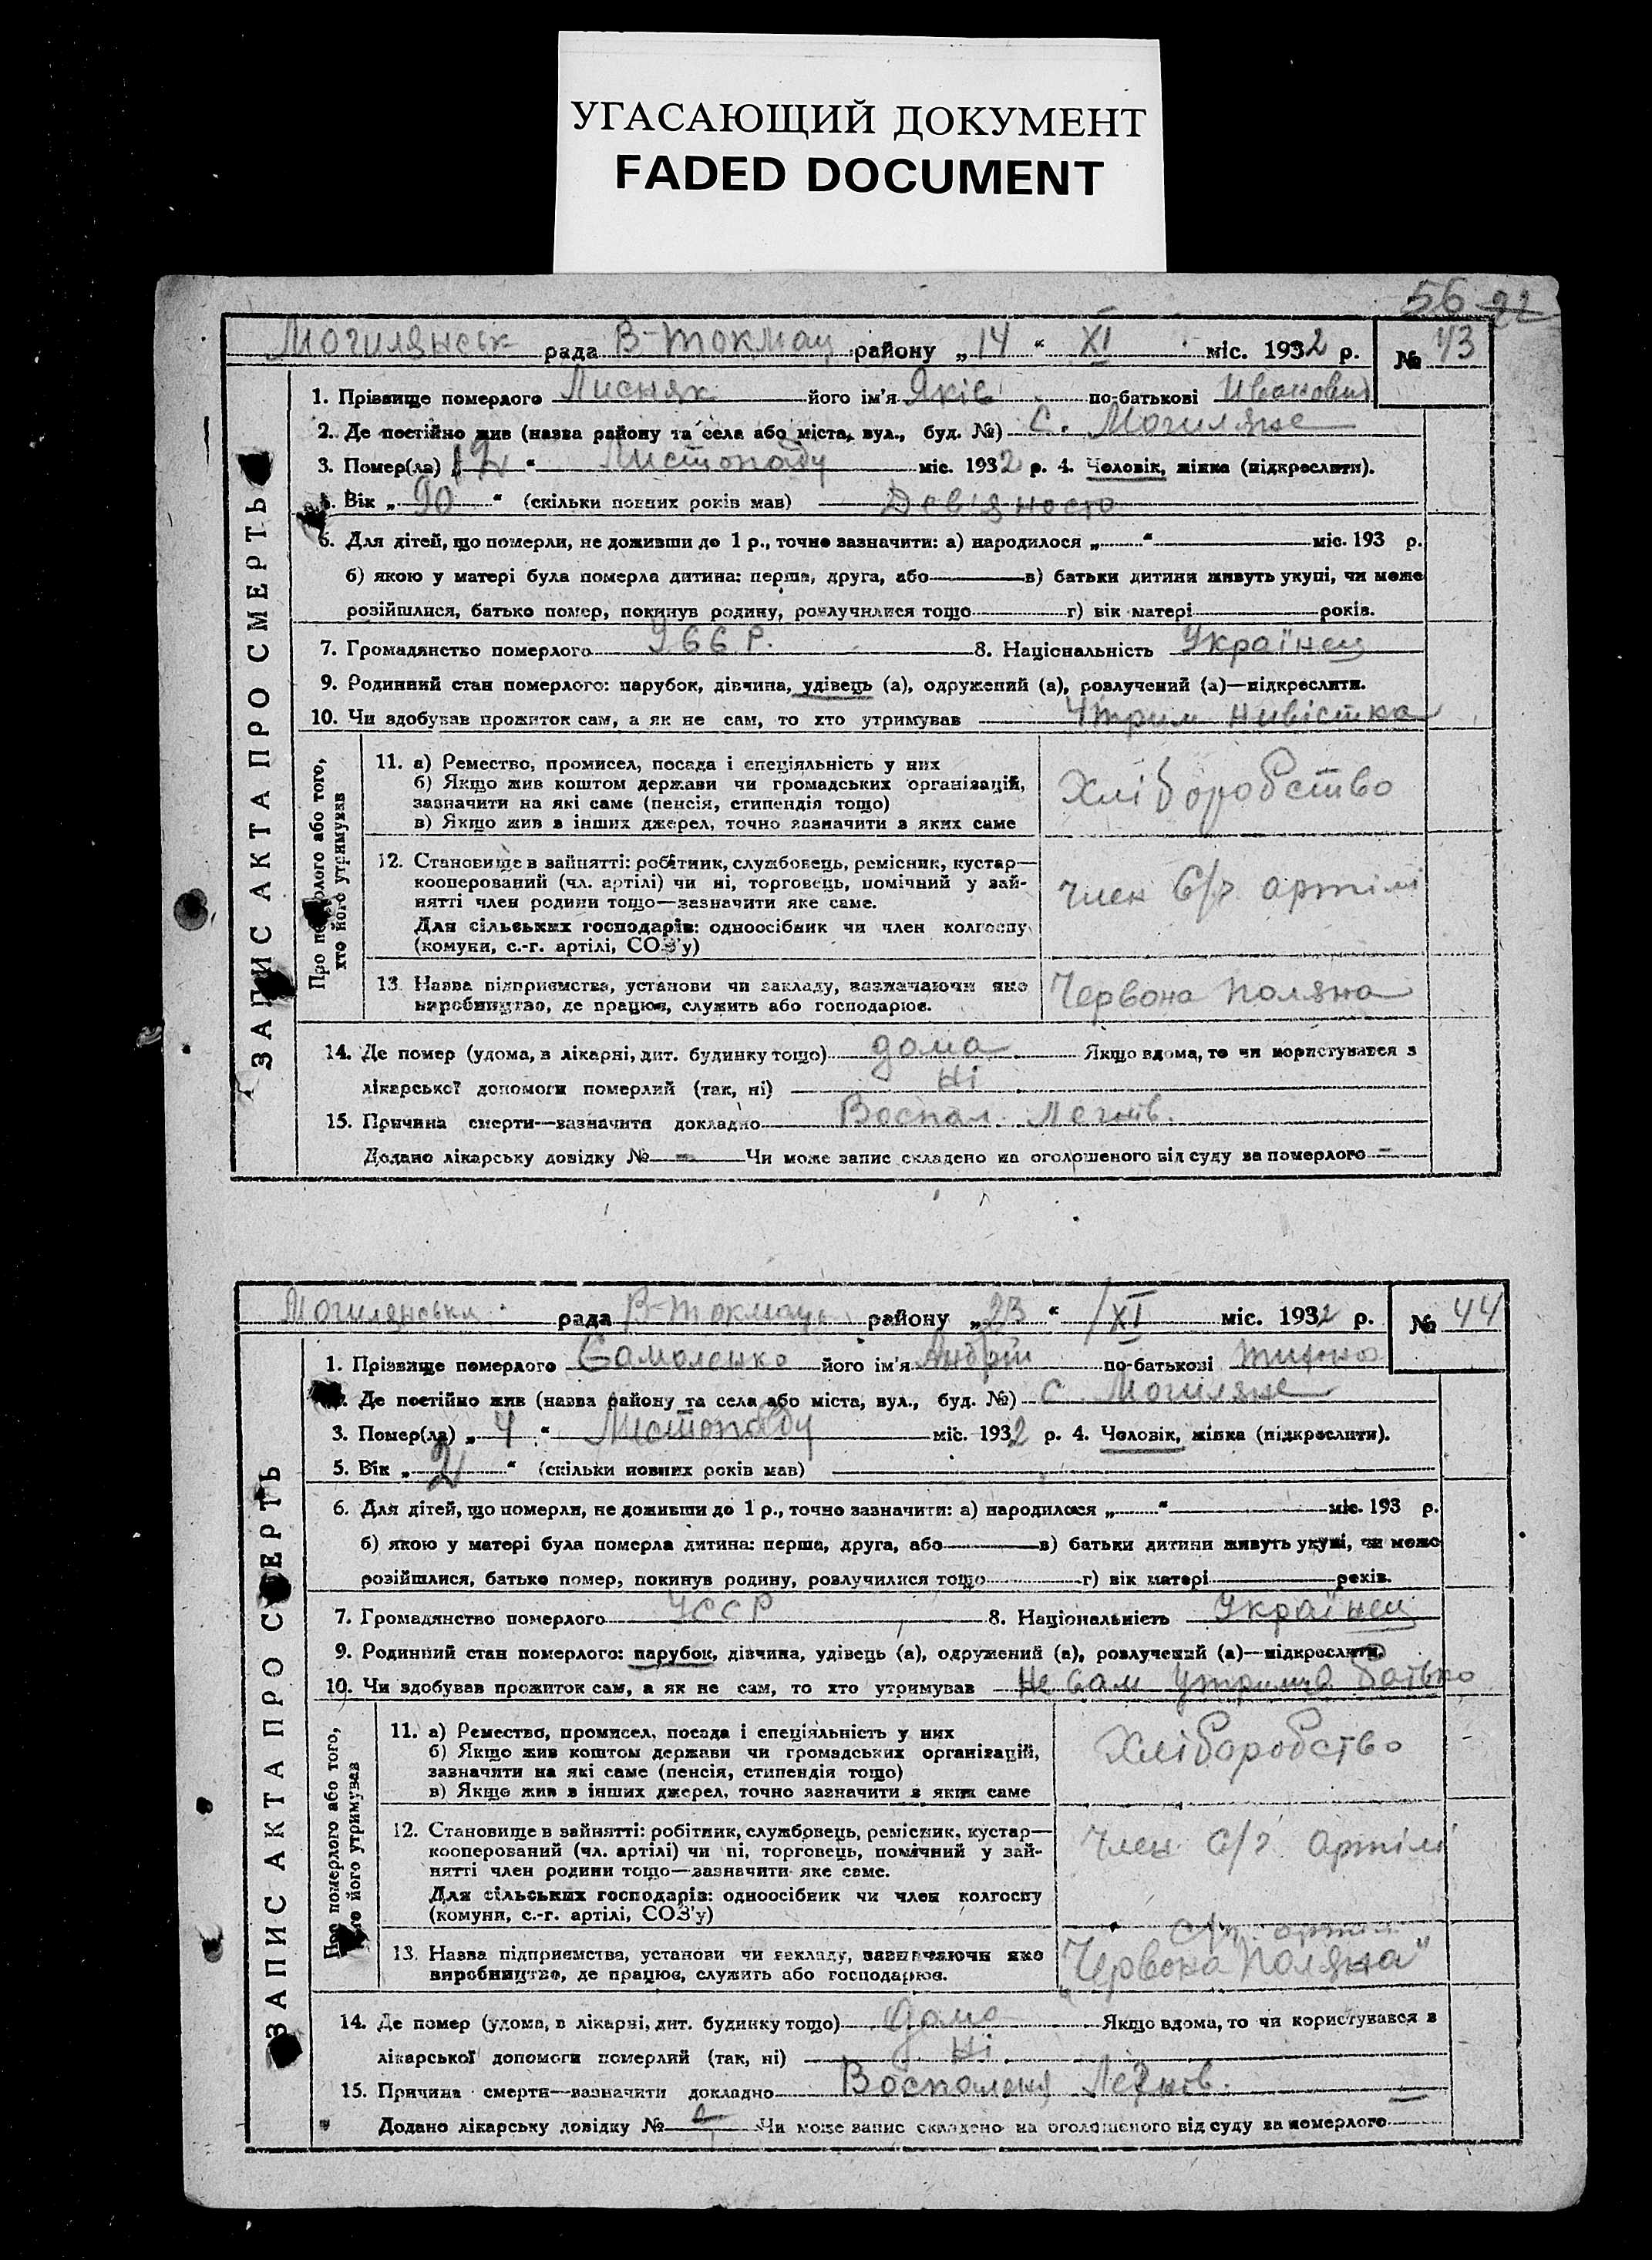 УГАСАЮЩИЙ ДОКУМЕНТ
FADED DOCUMENT
56 22
Могилянськ рада В-Токмац району „14“ XI міс. 1932 р. № 43
ЗАПИС АКТА ПРО СМЕРТЬ
1. Прізвище померлого Лисняк його ім'я Яків по-батькові Иванович
2. Де постійно жив (назва району та села або міста, вул., буд. №) С. Могиляне
3. Помер(ла) „12“ Листопаду міс. 1932 р. 4. Чоловік, жінка (підкреслити).
5. Вік „90“ (скільки повних років мав) Девяносто
6. Для дітей, що померли, не доживши до 1 р., точно зазначити: а) народилося „ “ міс. 193 р.
б) якою у матері була померла дитина: перша, друга, або в) батьки дитини живуть укупі, чи може
розійшлися, батько помер, покинув родину, розлучилися тощо г) вік матері років.
7. Громадянство померлого УССР. 8. Національність Українец
9. Родинний стан померлого: парубок, дівчина, удівець (а), одружений (а), розлучений (а)—підкреслити.
10. Чи здобував прожиток сам, а як не сам, то хто утримував Утрим нивістка
Про померлого або того, хто його утримував
11. а) Ремество, промисел, посада і спеціяльність у них
б) Якщо жив коштом держави чи громадських організацій,
зазначити на які саме (пенсія, стипендія тощо)
в) Якщо жив з інших джерел, точно зазначити з яких саме
Хліборобство
12. Становище в зайнятті: робітник, службовець, ремісник, кустар—
кооперований (чл. артілі) чи ні, торговець, помічний у зай-
нятті член родини тощо—зазначити яке саме.
Для сільських господарів: одноосібник чи член колгоспу
(комуни, с.-г. артілі, СОЗ'у)
Член С/г артілі
13. Назва підприємства, установи чи закладу, зазначаючи яке
виробництво, де працює, служить або господарює.
Червона поляна
14. Де помер (удома, в лікарні, дит. будинку тощо) дома Якщо вдома, то чи користувався з
лікарської допомоги померлий (так, ні) Ні
15. Причина смерти—зазначити докладно Воспал. Легків.
Додано лікарську довідку № - Чи може запис складено на оголошеного від суду за померлого -
Могилянська рада В-Токмаць району „23“ XI міс. 1932 р. № 44
ЗАПИС АКТА ПРО СМЕРТЬ
1. Прізвище померлого Самоленко його ім'я Андрій по-батькові
2. Де постійно жив (назва району та села або міста, вул., буд. №) С Могиляне
3. Помер(ла) „4“ Листопаду міс. 1932 р. 4. Чоловік, жінка (підкреслити).
5. Вік „2“ (скільки повних років мав)
6. Для дітей, що померли, не доживши до 1 р., точно зазначити: а) народилося „ “ міс. 193 р.
б) якою у матері була померла дитина: перша, друга, або в) батьки дитини живуть укупі, чи може
розійшлися, батько помер, покинув родину, розлучилися тощо г) вік матері років.
7. Громадянство померлого УССР 8. Національність Українец
9. Родинний стан померлого: парубок, дівчина, удівець (а), одружений (а), розлучений (а)—підкреслити.
10. Чи здобував прожиток сам, а як не сам, то хто утримував Не Сам Утримув батько
Про померлого або того, хто його утримував
11. а) Ремество, промисел, посада і спеціяльність у них
б) Якщо жив коштом держави чи громадських організацій,
зазначити на які саме (пенсія, стипендія тощо)
в) Якщо жив з інших джерел, точно зазначити з яких саме
Хліборобство
12. Становище в зайнятті: робітник, службовець, ремісник, кустар—
кооперований (чл. артілі) чи ні, торговець, помічний у зай-
нятті член родини тощо—зазначити яке саме.
Для сільських господарів: одноосібник чи член колгоспу
(комуни, с.-г. артілі, СОЗ'у)
Член с/г Артілі
13. Назва підприємства, установи чи закладу, зазначаючи яке
виробництво, де працює, служить або господарює.
с/г. артіл
„Червона Поляна"
14. Де помер (удома, в лікарні, дит. будинку тощо) дома Якщо вдома, то чи користувався з
лікарської допомоги померлий (так, ні) Ні
15. Причина смерти—зазначити докладно Воспаленя Легків.
Додано лікарську довідку № Чи може запис складено на оголошеного від суду за померлого